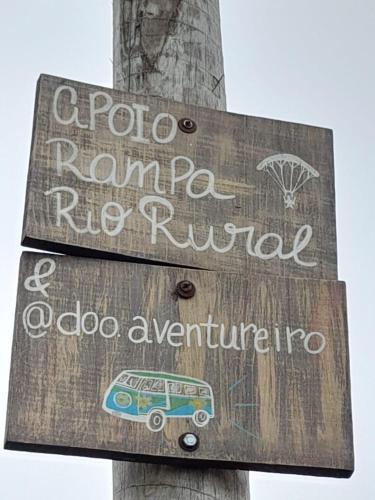 APOIO
RamPa
Rio Rural
&
@doo.aventureiro